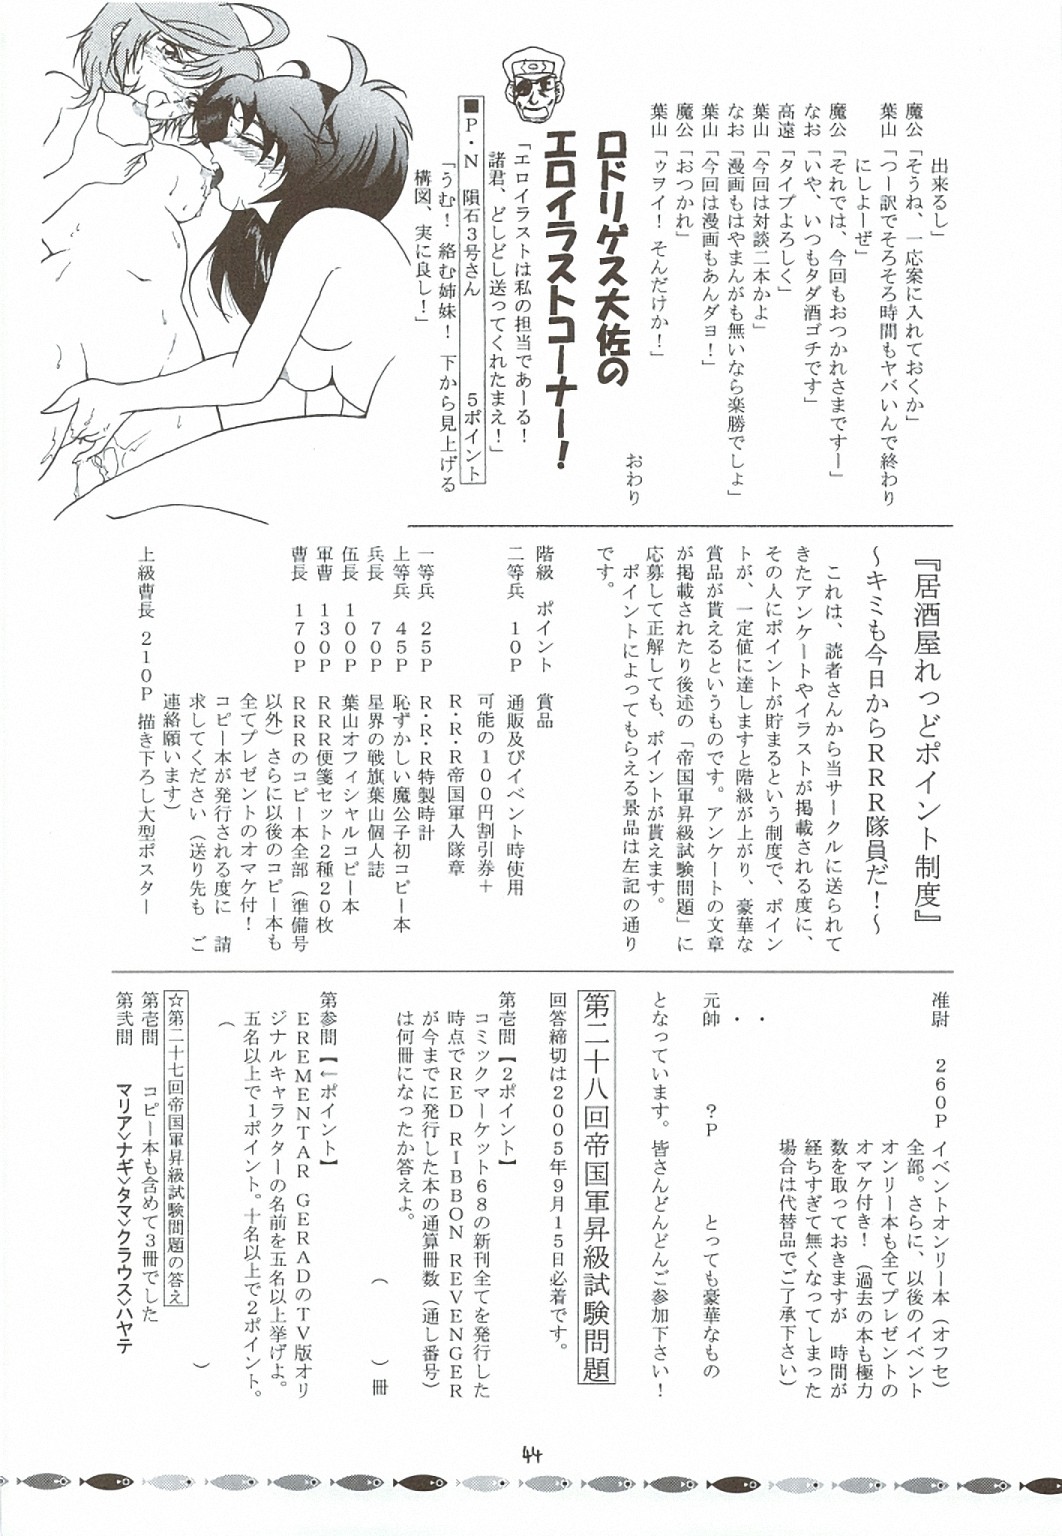 出来るし」
魔公「そうね、一応案に入れておくか」
葉山「つー訳でそろそろ時間もヤバいんで終わり
にしよーぜ」
魔公「それでは、今回もおつかれさまですー」
なお「いや、いつもタダ酒ゴチです」
高遠「タイプよろしく」
葉山「今回は対談二本かよ」
なお「漫画もはやまんがも無いなら楽勝でしょ」
葉山「今回は漫画もあんダョ！」
魔公「おつかれ」
葉山「ゥヲイ！そんだけか！」
おわり
ロドリゲス大佐の
エロイラストコーナー！
「エロイラストは私の担当であーる！
諸君、どしどし送ってくれたまえ！」
■P・N　隕石３号さん　５ポイント
「うむ！　絡む姉妹！　下から見上げる
構図、実に良し！」
『居酒屋れっどポイント制度』
～キミも今日からＲＲＲ隊員だ！～
これは、読者さんから当サークルに送られて
きたアンケートやイラストが掲載される度に、
その人にポイントが貯まるという制度で、ポイン
トが、一定値に達しますと階級が上がり、豪華な
賞品が貰えるというものです。アンケートの文章
が掲載されたり後述の「帝国軍昇級試験問題」に
応募して正解しても、ポイントが貰えます。
ポイントによってもらえる景品は左記の通り
です。
階級　ポイント　賞品
二等兵　１０Ｐ　通販及びイベント時使用
可能の１００円割引券＋
Ｒ・Ｒ・Ｒ帝国軍入隊章
一等兵　２５Ｐ　Ｒ・Ｒ・Ｒ特製時計
上等兵　４５Ｐ　恥ずかしい魔公子初コピー本
兵長　７０Ｐ　星界の戦旗葉山個人誌
伍長　１００Ｐ　葉山オフィシャルコピー本
軍曹　１３０Ｐ　ＲＲＲ便箋セット２種２０枚
曹長　１７０Ｐ　ＲＲＲのコピー本全部（準備号
以外）さらに以後のコピー本も
全てプレゼントのオマケ付！
コピー本が発行される度に　請
求してください（送り先も　ご
連絡願います）
上級曹長　２１０Ｐ　描き下ろし大型ポスター
准尉　２６０Ｐ　イベントオンリー本（オフセ）
全部。さらに、以後のイベント
オンリー本も全てプレゼントの
オマケ付き！（過去の本も極力
数を取っておきますが　時間が
経ちすぎて無くなってしまった
場合は代替品でご了承下さい）
・
・
元帥　？Ｐ　とっても豪華なもの
となっています。皆さんどんどんご参加下さい！
第二十八回帝国軍昇級試験問題
回答締切は２００５年９月１５日必着です。
第壱問【２ポイント】
コミックマーケット６８の新刊全てを発行した
時点でＲＥＤ　ＲＩＢＢＯＮ　ＲＥＶＥＮＧＥＲ
が今までに発行した本の通算冊数（通し番号）
は何冊になったか答えよ。
（　　　）冊
第参問【←ポイント】
ＥＲＥＭＥＮＴＡＲ　ＧＥＲＡＤのＴＶ版オリ
ジナルキャラクターの名前を五名以上挙げよ。
五名以上で１ポイント。十名以上で２ポイント。
（　　　）
☆第二十七回帝国軍昇級試験問題の答え
第壱問　コピー本も含めて３冊でした
第弐問　マリア＞ナギ＞タマ＞クラウス＞ハヤテ
44